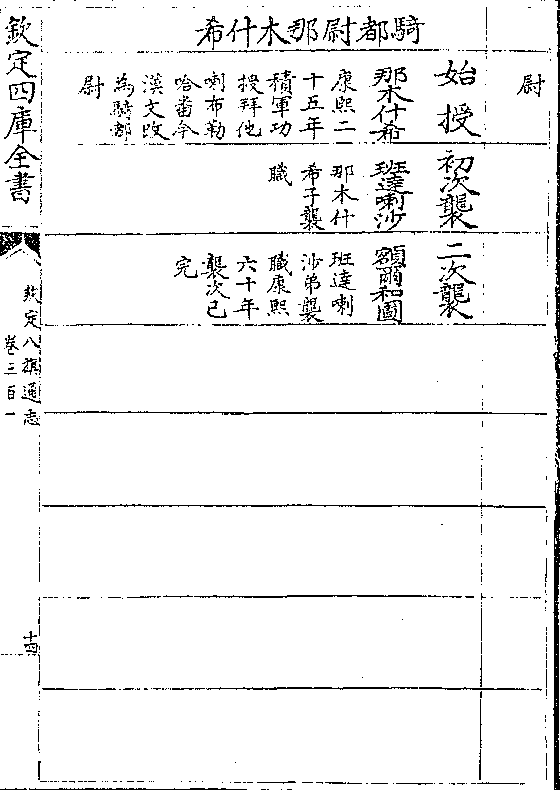 尉
騎都尉那木什希
始授
那木什希
康熙二
十五年
積軍功
授拜他
喇布勒
哈番今
漢文改
為騎都
尉
初次襲
班達喇沙
那木什
希子襲
職
二次襲
額爾和圖
班達喇
沙弟襲
職康熙
六十年
襲次已
完
欽定四庫全書
欽定八旗通志
卷三百一
十四